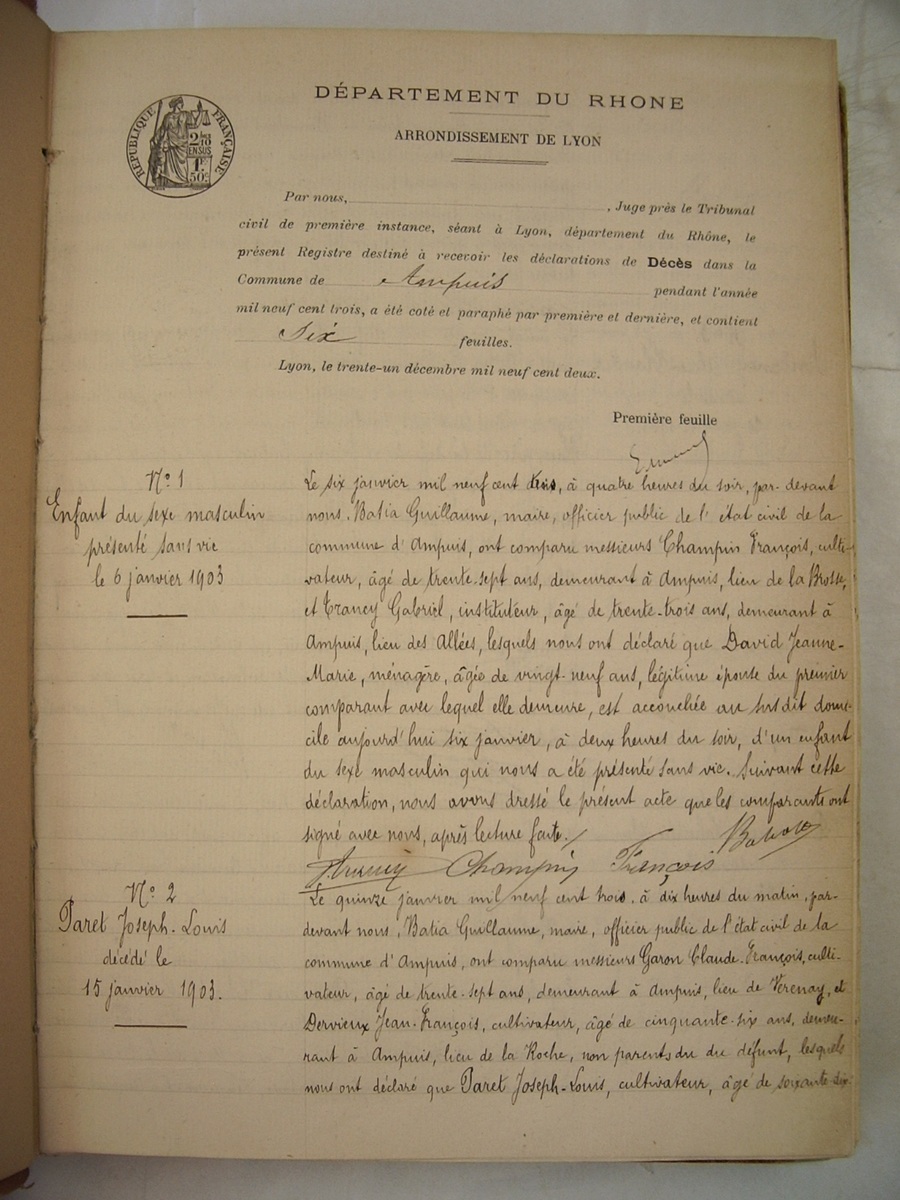 DÉPARTEMENT DU RHONE
ARRONDISSEMENT DE LYON
RÉPUBLIQUE FRANÇAISE
2/10
EN SUS
1F
50c
Par nous, , Juge près le Tribunal
civil de première instance, séant à Lyon, département du Rhône, le
présent Registre destiné à recevoir les déclarations de Décès dans la
Commune de Ampuis pendant l'année
mil neuf cent trois, a été coté et paraphé par première et dernière, et contient
Six feuilles.
Lyon, le trente-un décembre mil neuf cent deux.
Première feuille
N° 1
Enfant du sexe masculin
présenté sans vie
le 6 janvier 1903
Le six janvier mil neuf cent trois, à quatre heures du soir, par-devant
nous, Batia Guillaume, maire, officier public de l'état civil de la
commune d'Ampuis, ont comparu messieurs Champin François, culti-
vateur, âgé de trente-sept ans, demeurant à Ampuis, lieu de la Brosse,
et Trancy Gabriel, instituteur, âgé de trente-trois ans, demeurant à
Ampuis, lieu des Allées, lesquels nous ont déclaré que David Jeanne-
Marie, ménagère, âgée de vingt-neuf ans, légitime épouse du premier
comparant avec lequel elle demeure, est accouchée au susdit domi-
cile aujourd'hui six janvier, à deux heures du soir, d'un enfant
du sexe masculin qui nous a été présenté sans vie. Suivant cette
déclaration, nous avons dressé le présent acte que les comparants ont
signé avec nous, après lecture faite.
Champin François
N° 2
Paret Joseph-Louis
décédé le
15 janvier 1903.
Le quinze janvier mil neuf cent trois, à dix heures du matin, par-
devant nous, Batia Guillaume, maire, officier public de l'état civil de la
commune d'Ampuis, ont comparu messieurs Garon Claude-François, culti-
vateur, âgé de trente-sept ans, demeurant à Ampuis, lieu de Verenay, et
Dervieux Jean-François, cultivateur, âgé de cinquante-six ans, demeu-
rant à Ampuis, lieu de la Roche, non parents du du défunt, lesquels
nous ont déclaré que Paret Joseph-Louis, cultivateur, âgé de soixante-dix-